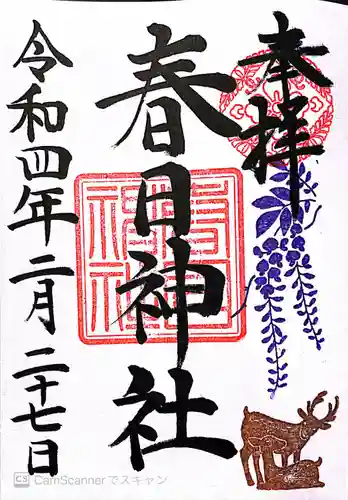 奉拝
春日神社
春日神社
令和四年二月二十七日
CS CamScannerでスキャン